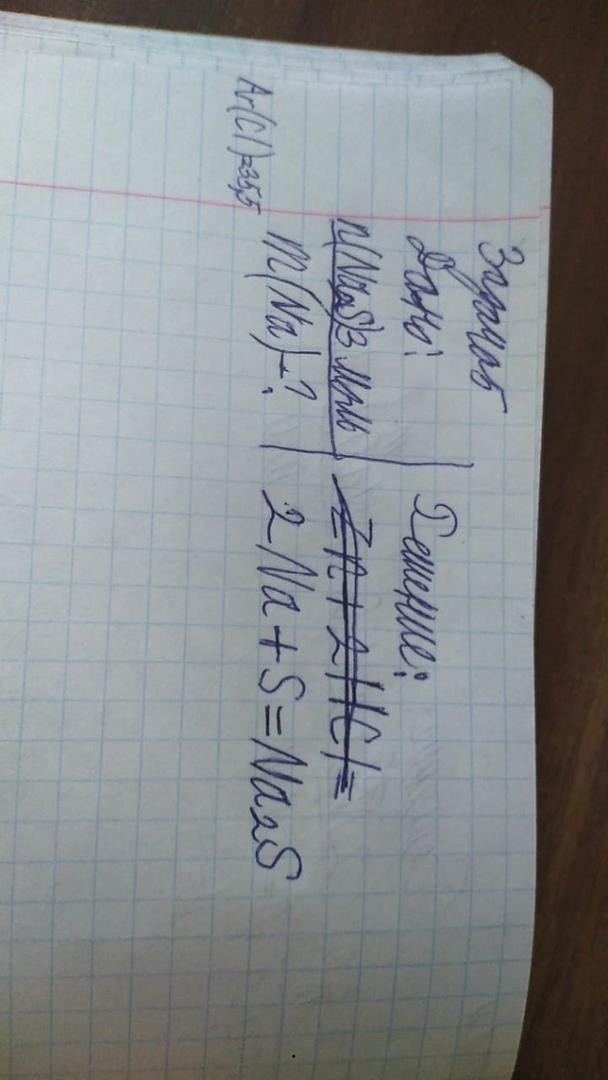 Задача 5
Дано:
n(Na2S)=3 моль
m(Na)-?
Ar(Cl)=35,5
Решение:
Zn+2HCl=
2Na+S=Na2S